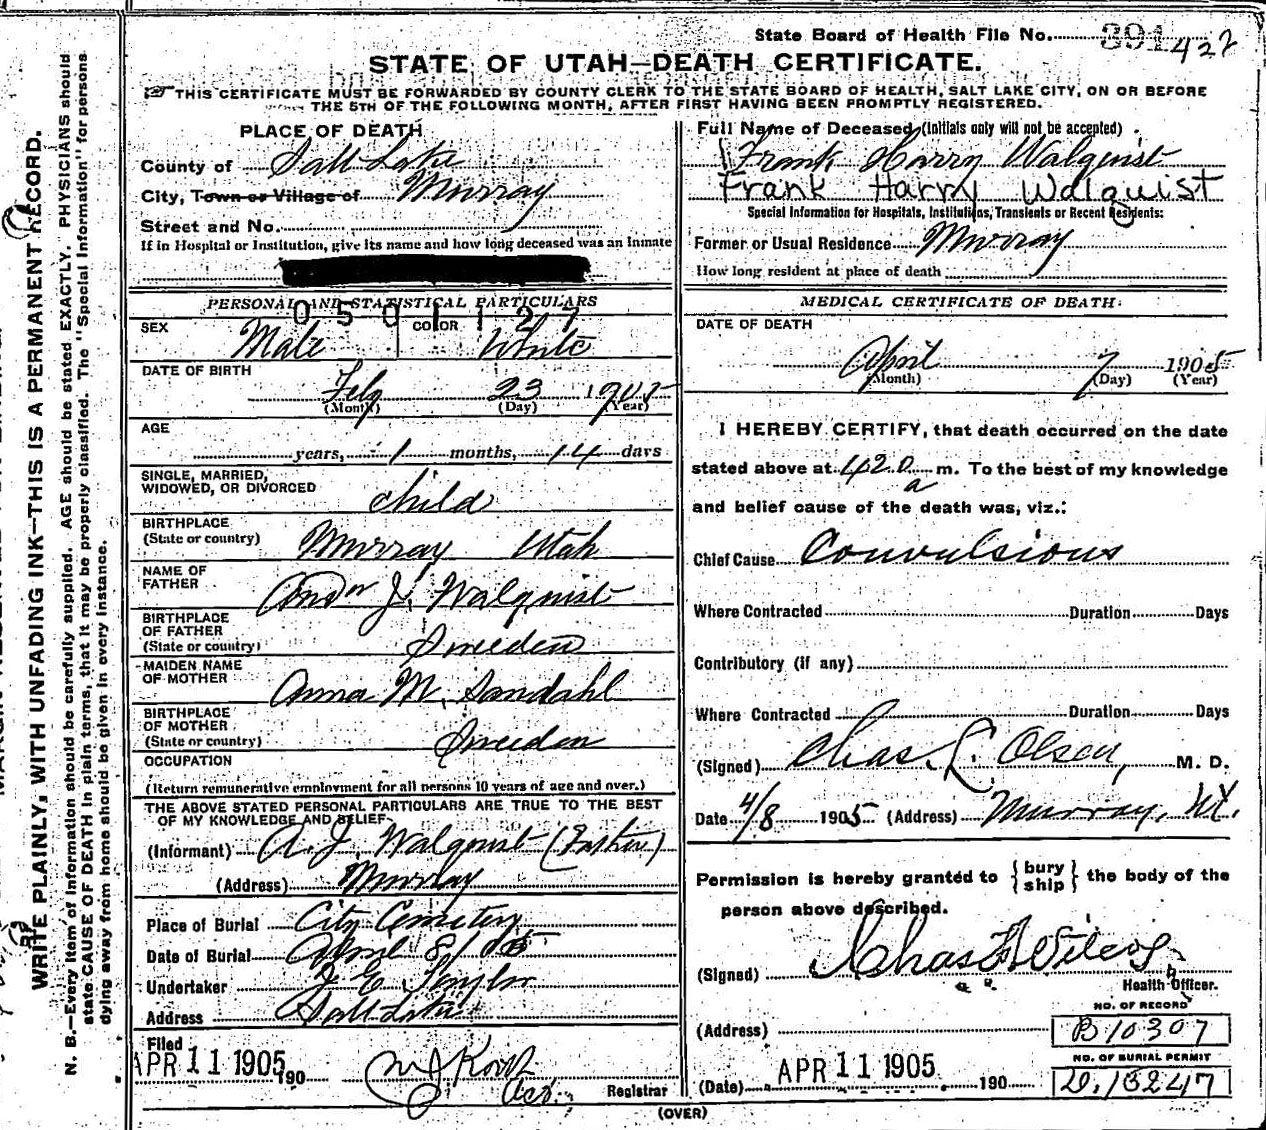 State Board of Health File No. 391 422
STATE OF UTAH—DEATH CERTIFICATE.
THIS CERTIFICATE MUST BE FORWARDED BY COUNTY CLERK TO THE STATE BOARD OF HEALTH, SALT LAKE CITY, ON OR BEFORE
THE 5TH OF THE FOLLOWING MONTH, AFTER FIRST HAVING BEEN PROMPTLY REGISTERED.
PLACE OF DEATH
County of Salt Lake
City, Town or Village of Murray
Street and No.
If in Hospital or Institution, give its name and how long deceased was an Inmate
Full Name of Deceased (Initials only will not be accepted)
Frank Harry Walquist
Frank Harry Walquist
Special Information for Hospitals, Institutions, Transients or Recent Residents:
Former or Usual Residence Murray
How long resident at place of death
PERSONAL AND STATISTICAL PARTICULARS
0501127
SEX Male COLOR White
DATE OF BIRTH
Feby 23 1905
(Month) (Day) (Year)
AGE
years, 1 months, 14 days
SINGLE, MARRIED,
WIDOWED, OR DIVORCED child
BIRTHPLACE
(State or country) Murray Utah
NAME OF
FATHER And'w J. Walquist
BIRTHPLACE
OF FATHER
(State or country) Sweeden
MAIDEN NAME
OF MOTHER Anna M. Sandahl
BIRTHPLACE
OF MOTHER
(State or country) Sweeden
OCCUPATION
(Return remunerative employment for all persons 10 years of age and over.)
THE ABOVE STATED PERSONAL PARTICULARS ARE TRUE TO THE BEST
OF MY KNOWLEDGE AND BELIEF
(Informant) A. J. Walquist (Father)
(Address) Murray
Place of Burial City Cemetery
Date of Burial April 8/05
Undertaker J E Taylor
Address Salt Lake
Filed
APR 11 1905 190
Registrar
MEDICAL CERTIFICATE OF DEATH:
DATE OF DEATH
April 7 1905
(Month) (Day) (Year)
I HEREBY CERTIFY, that death occurred on the date
stated above at 420 a m. To the best of my knowledge
and belief cause of the death was, viz.:
Chief Cause Convulsions
Where Contracted Duration Days
Contributory (if any)
Where Contracted Duration Days
(Signed) Chas. L. Olsen, M. D.
Date 4/8 1905 (Address) Murray, Ut.
Permission is hereby granted to {bury
ship} the body of the
person above described.
(Signed) Chas
Health Officer.
NO. OF RECORD
(Address) B10307
NO. OF BURIAL PERMIT
(Date) APR 11 1905 190 D.13247
(OVER)
WRITE PLAINLY, WITH UNFADING INK—THIS IS A PERMANENT RECORD.
N. B.—Every item of information should be carefully supplied. AGE should be stated EXACTLY. PHYSICIANS should
state CAUSE OF DEATH in plain terms, that it may be properly classified. The "Special Information" for persons
dying away from home should be given in every instance.